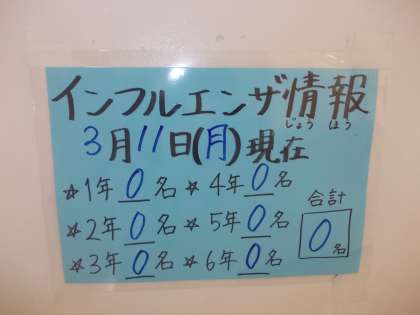 インフルエンザ情報
じょう ほう
3月11日(月)現在
☆1年 0名 ☆4年 0名
☆2年 0名 ☆5年 0名
☆3年 0名 ☆6年 0名
合計
0名